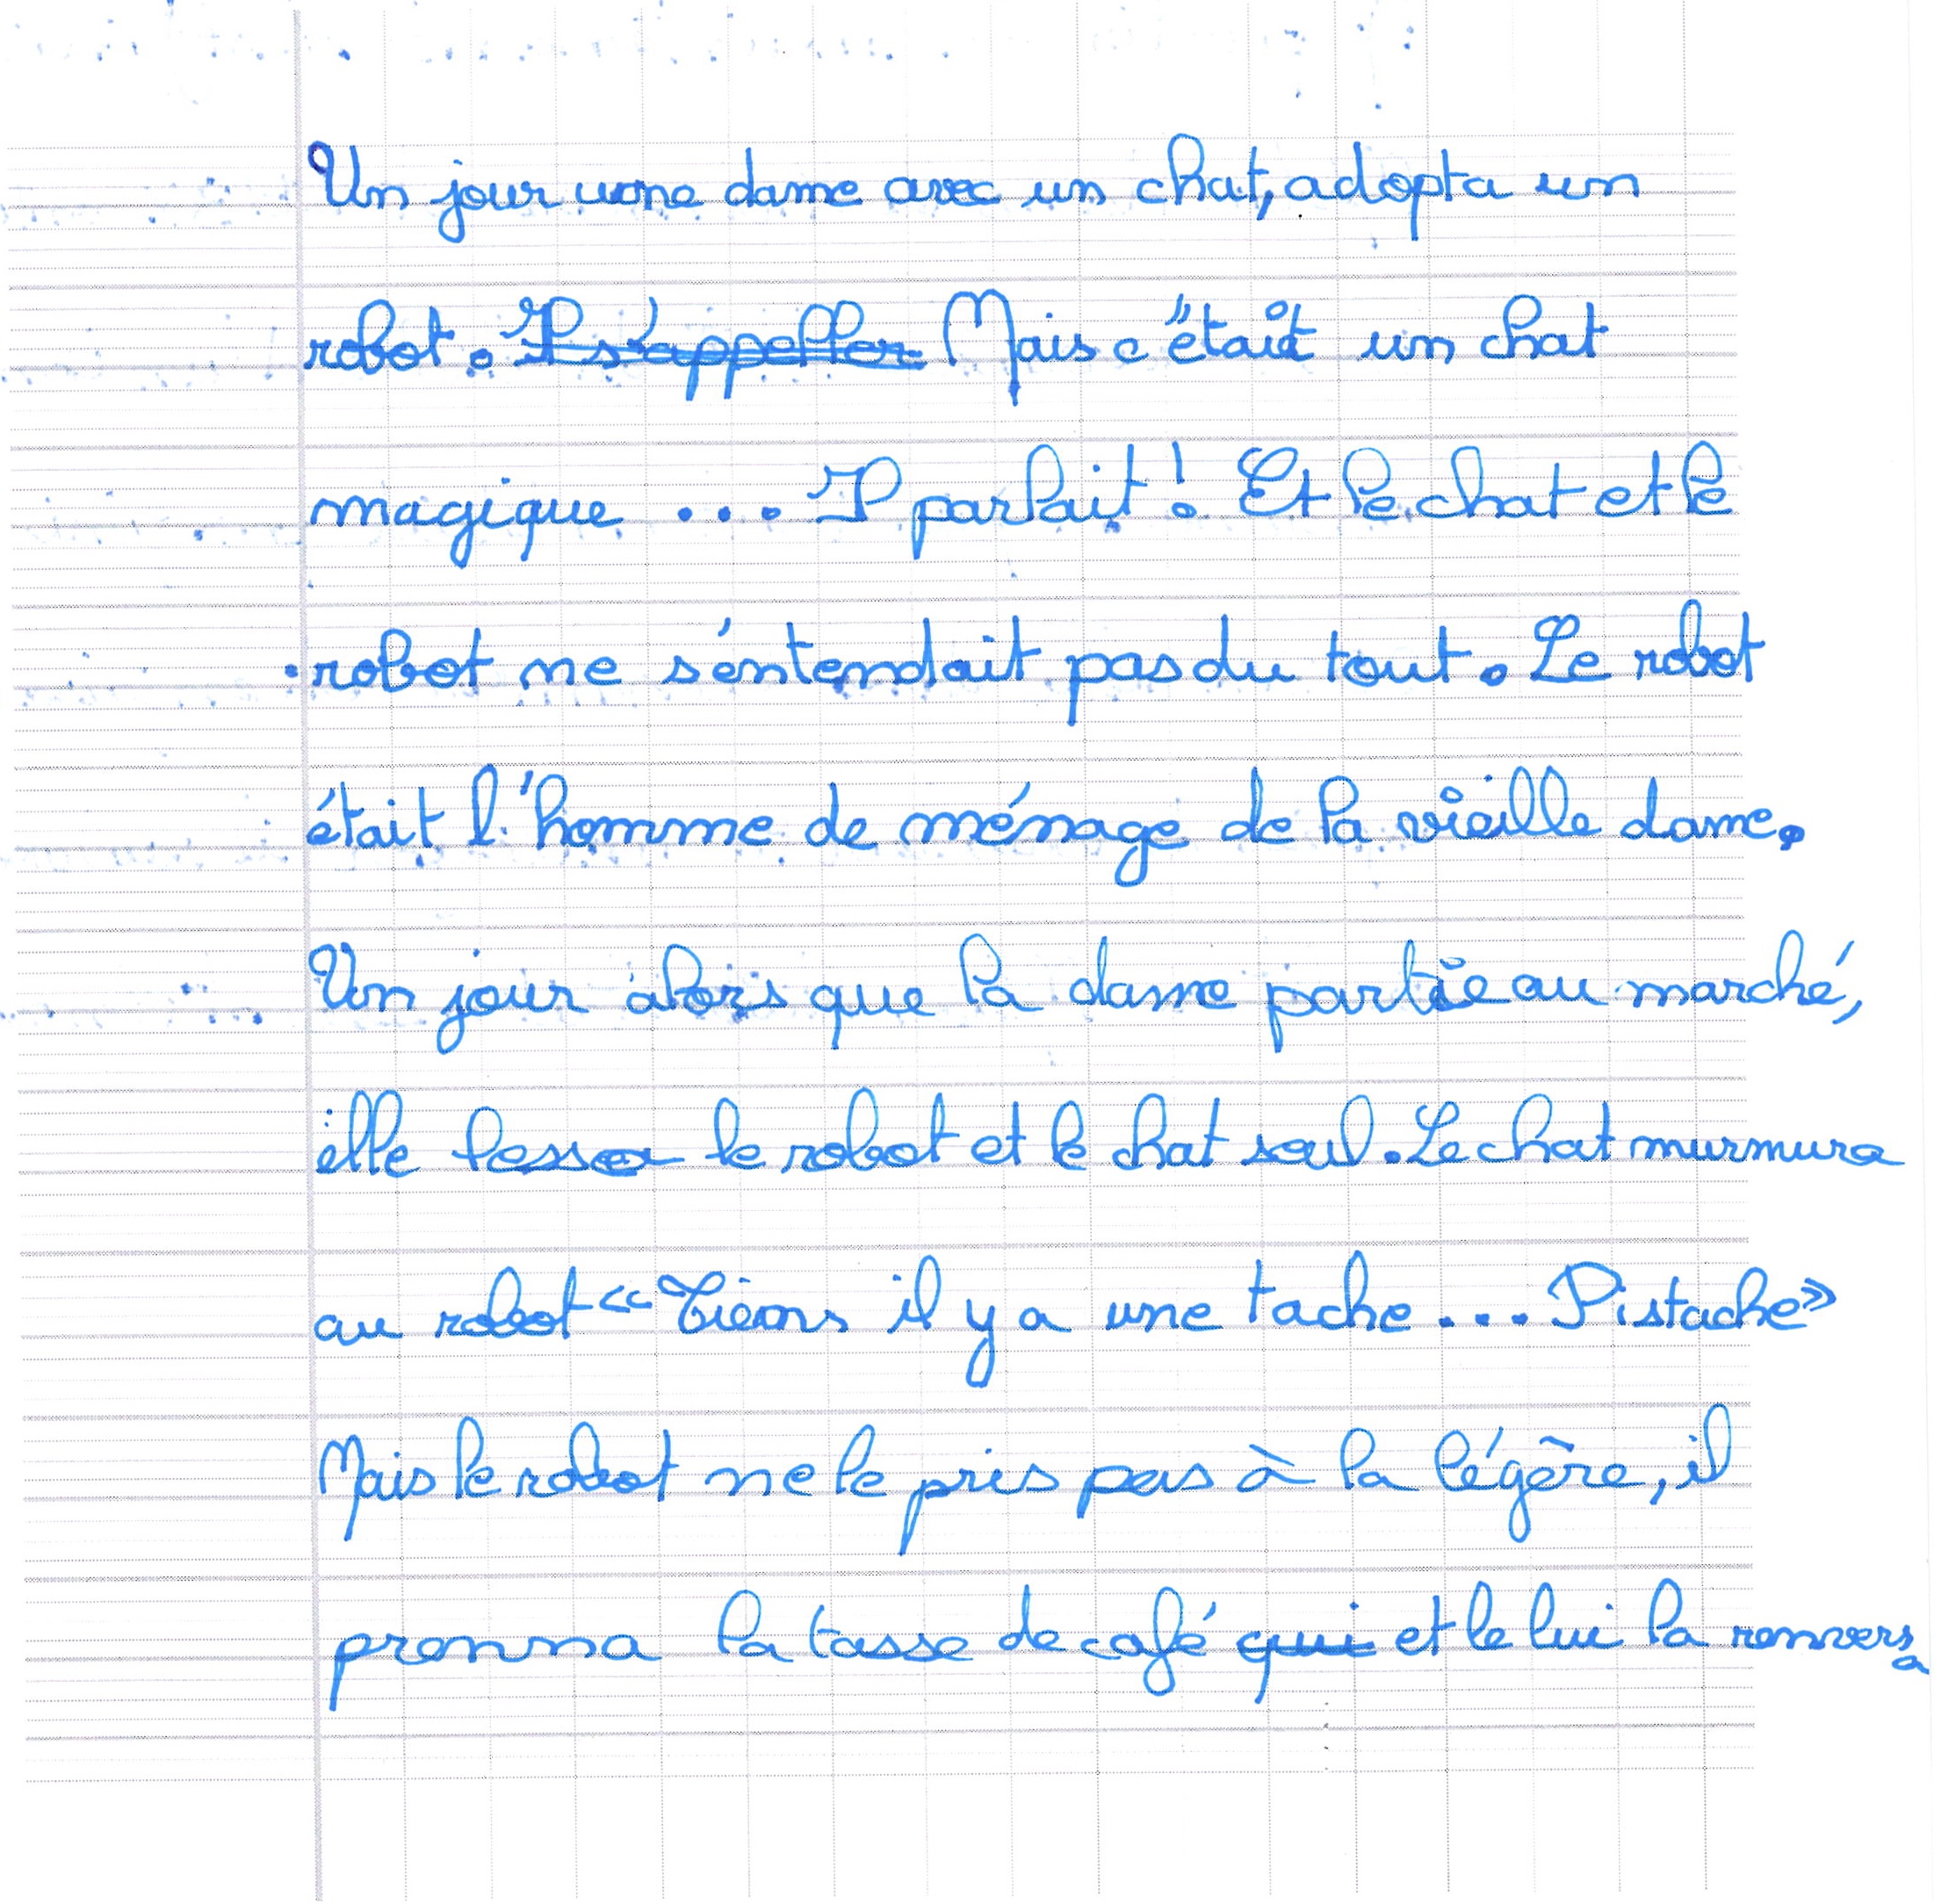 Un jour une dame avec un chat, adopta un
robot. Il s'appeller Mais c'était un chat
magique ... Il parlait! Et le chat et le
robot ne s'entendait pas du tout. Le robot
était l'homme de ménage de la vieille dame.
Un jour alors que la dame partie au marché,
elle lessa le robot et le chat seul. Le chat murmura
au robot « Tiens il y a une tache ... Pistache»
Mais le robot ne le pris pas à la légère, il
prenna la tasse de café qui et le lui la renversa